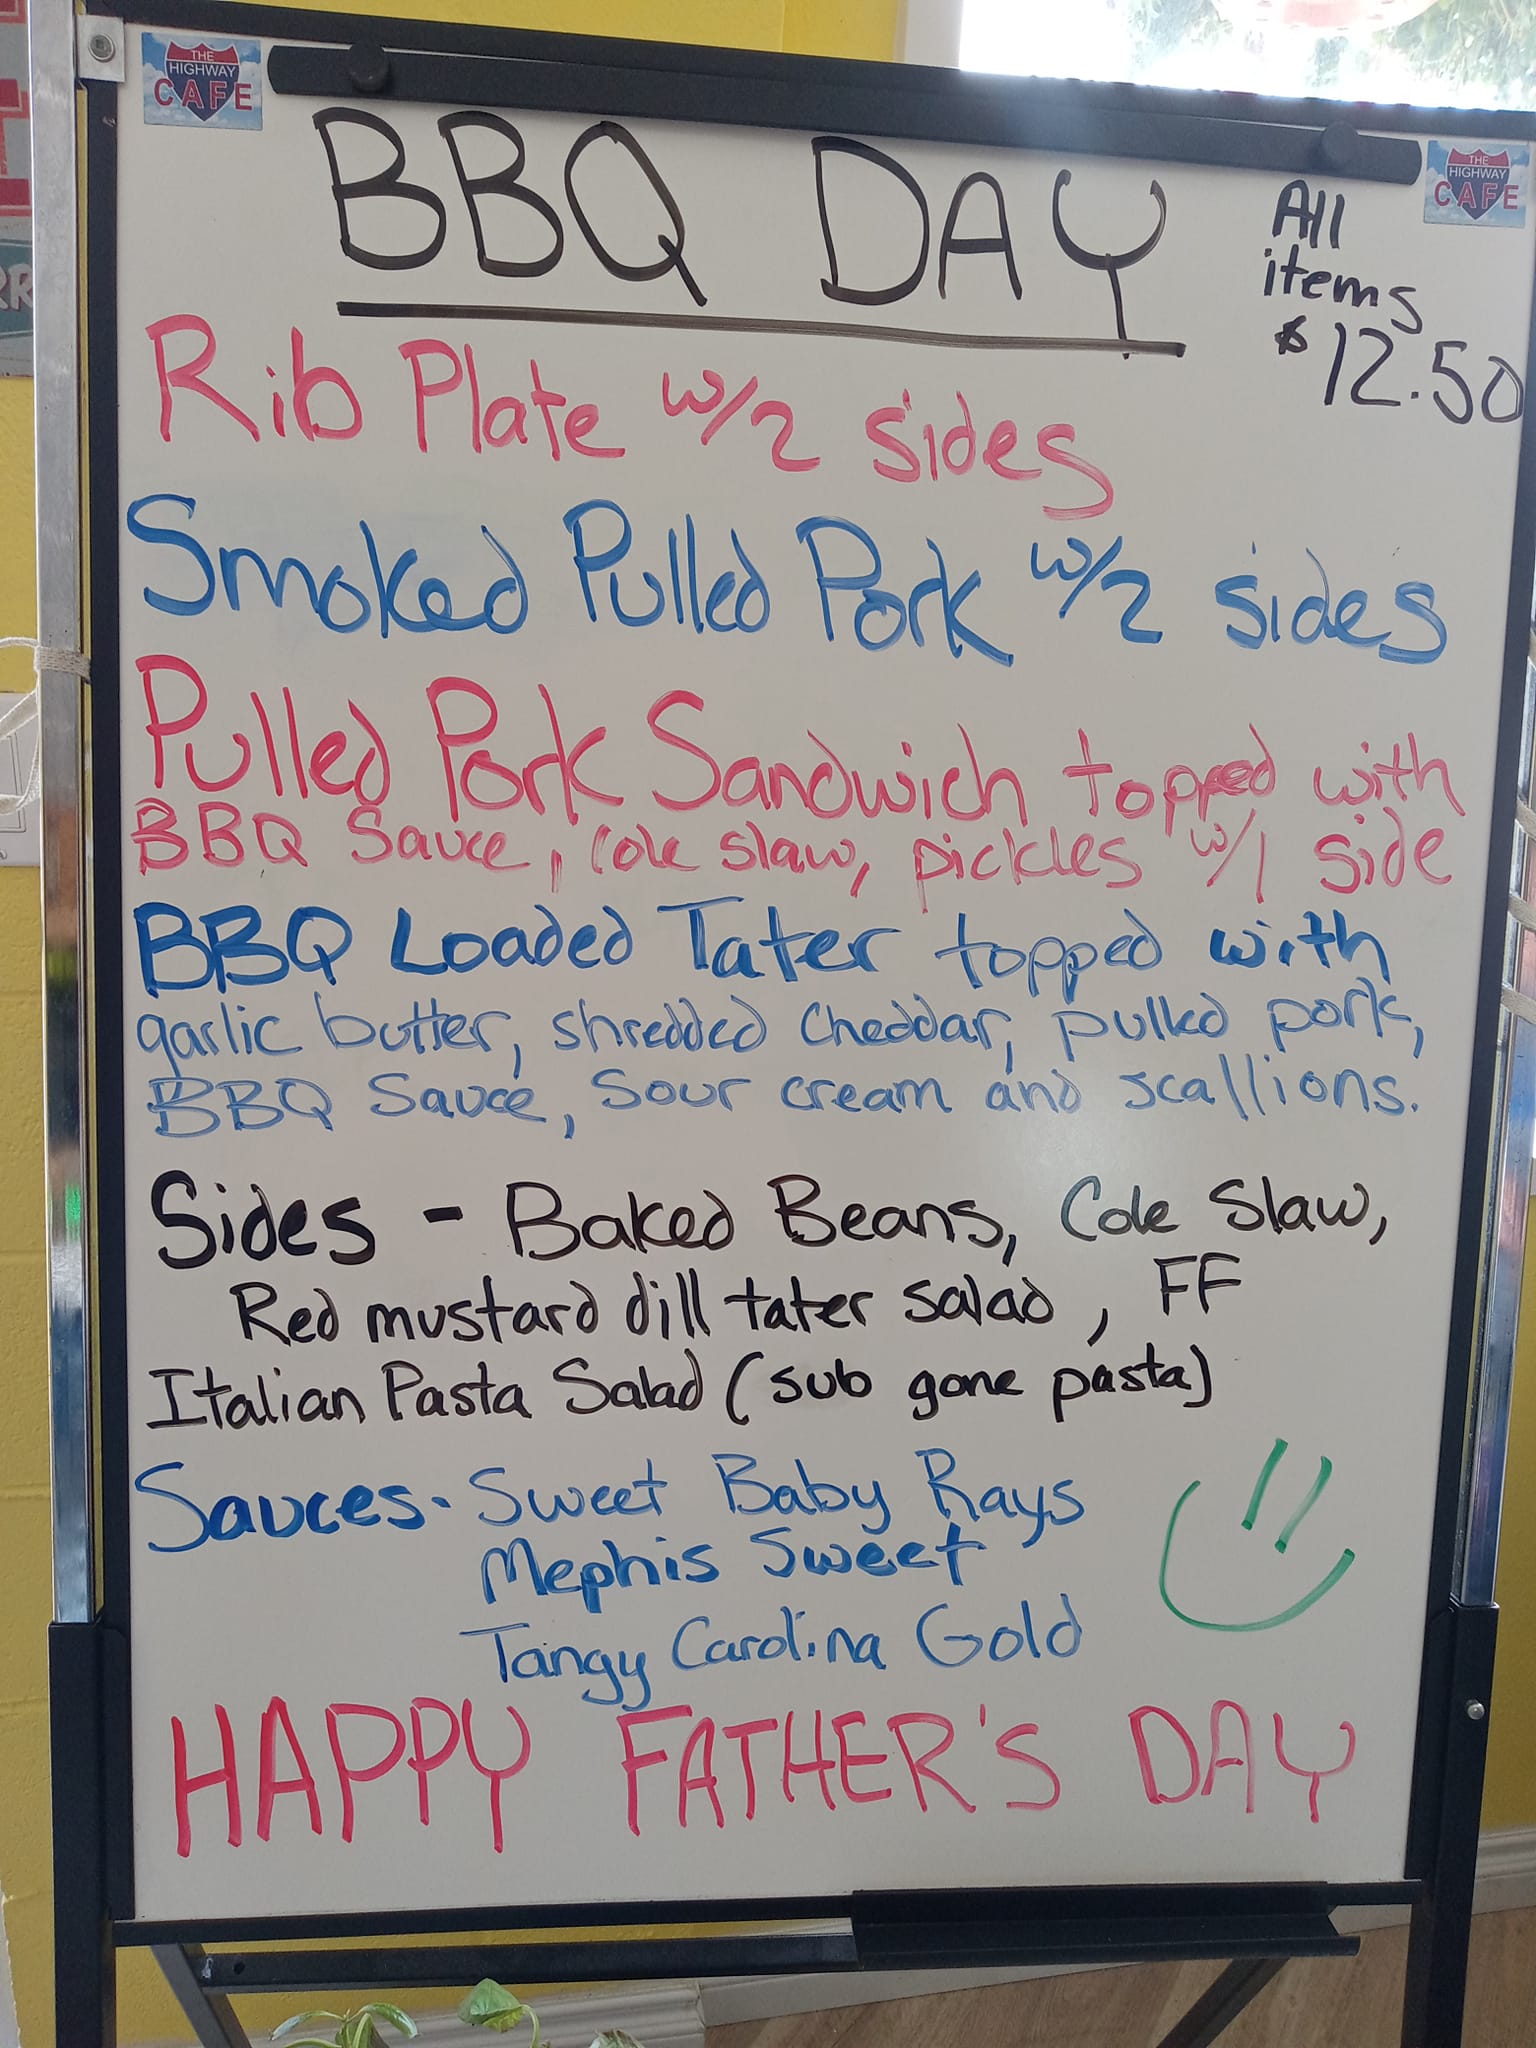 THE
HIGHWAY
CAFE
THE
HIGHWAY
CAFE
BBQ DAY
All
items
$12.50
Rib Plate w/2 sides
Smoked Pulled Pork w/2 sides
Pulled Pork Sandwich topped with
BBQ Sauce, cole slaw, pickles w/1 side
BBQ Loaded Tater topped with
garlic butter, shredded cheddar, pulled pork,
BBQ Sauce, sour cream and scallions.
Sides - Baked Beans, Cole Slaw,
Red mustard dill tater salad, FF
Italian Pasta Salad (sub gone pasta)
Sauces - Sweet Baby Rays
Mephis Sweet
Tangy Carolina Gold
HAPPY FATHER'S DAY